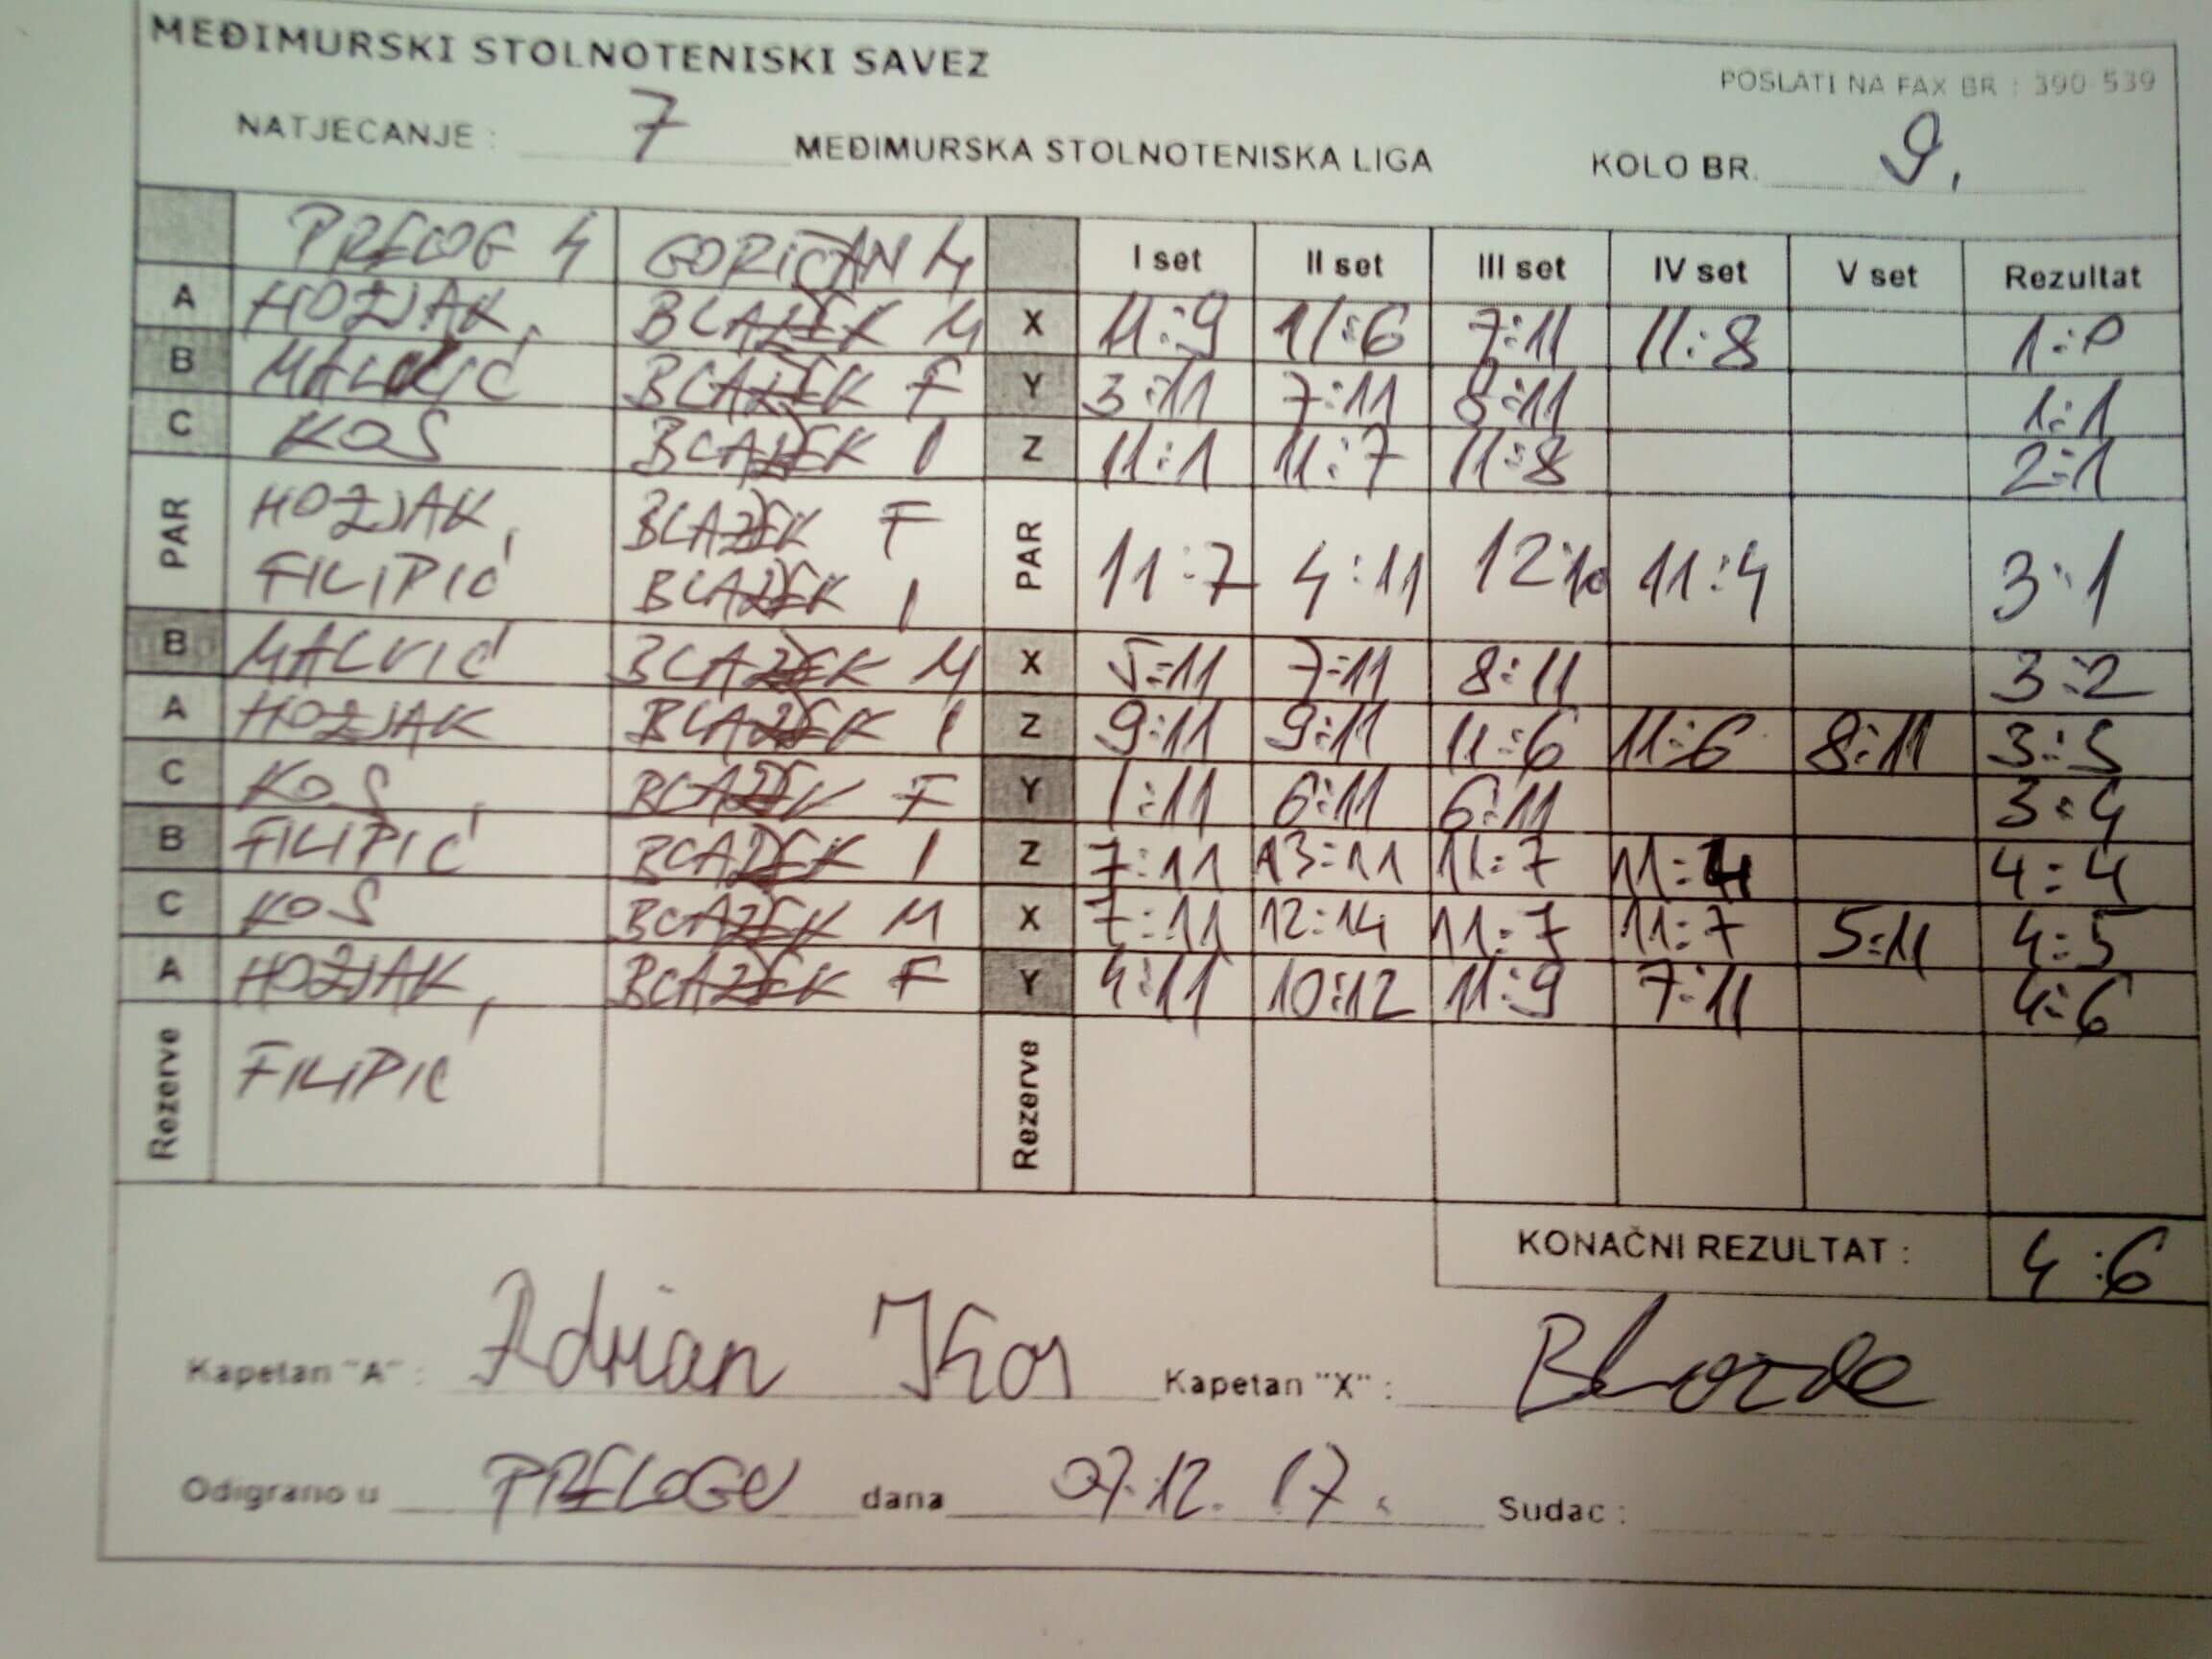 MEĐIMURSKI STOLNOTENISKI SAVEZ
POSLATI NA FAX BR : 390-539
NATJECANJE : 7 MEĐIMURSKA STOLNOTENISKA LIGA KOLO BR. 9.
PRELOG 4 GORIČAN 4 I set II set III set IV set V set Rezultat
A HOŽJAK BLAŽEK M X 11:9 11:6 7:11 11:8 1:0
B BLAŽEK F Y 3:11 7:11 8:11 1:1
C KOS BLAŽEK I Z 11:1 11:7 11:8 2:1
PAR HOŽJAK, BLAŽEK F PAR 11:7 4:11 12:10 11:4 3:1
FILIPIĆ BLAŽEK I
B MALVIĆ BLAŽEK M X 5:11 7:11 8:11 3:2
A HOŽJAK BLAŽEK I Z 9:11 9:11 11:6 11:6 8:11 3:3
C KOS BLAŽEK F Y 1:11 6:11 6:11 3:4
B FILIPIĆ BLAŽEK I Z 7:11 13:11 11:7 11:4 4:4
C KOS BLAŽEK M X 7:11 12:14 11:7 11:7 5:11 4:5
A HOŽJAK BLAŽEK F Y 4:11 10:12 11:9 7:11 4:6
Rezerve FILIPIĆ Rezerve
KONAČNI REZULTAT : 4:6
Kapetan "A" : Adrian Kos Kapetan "X" :
Odigrano u PRELOGU dana 07.12.17. Sudac :